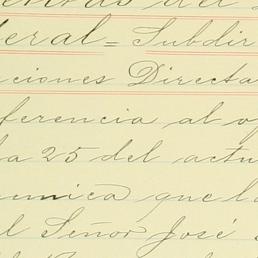 eral = Subdir
ciones Directa
ferencia al o
a 25 del actu
emica que la
l Señor José